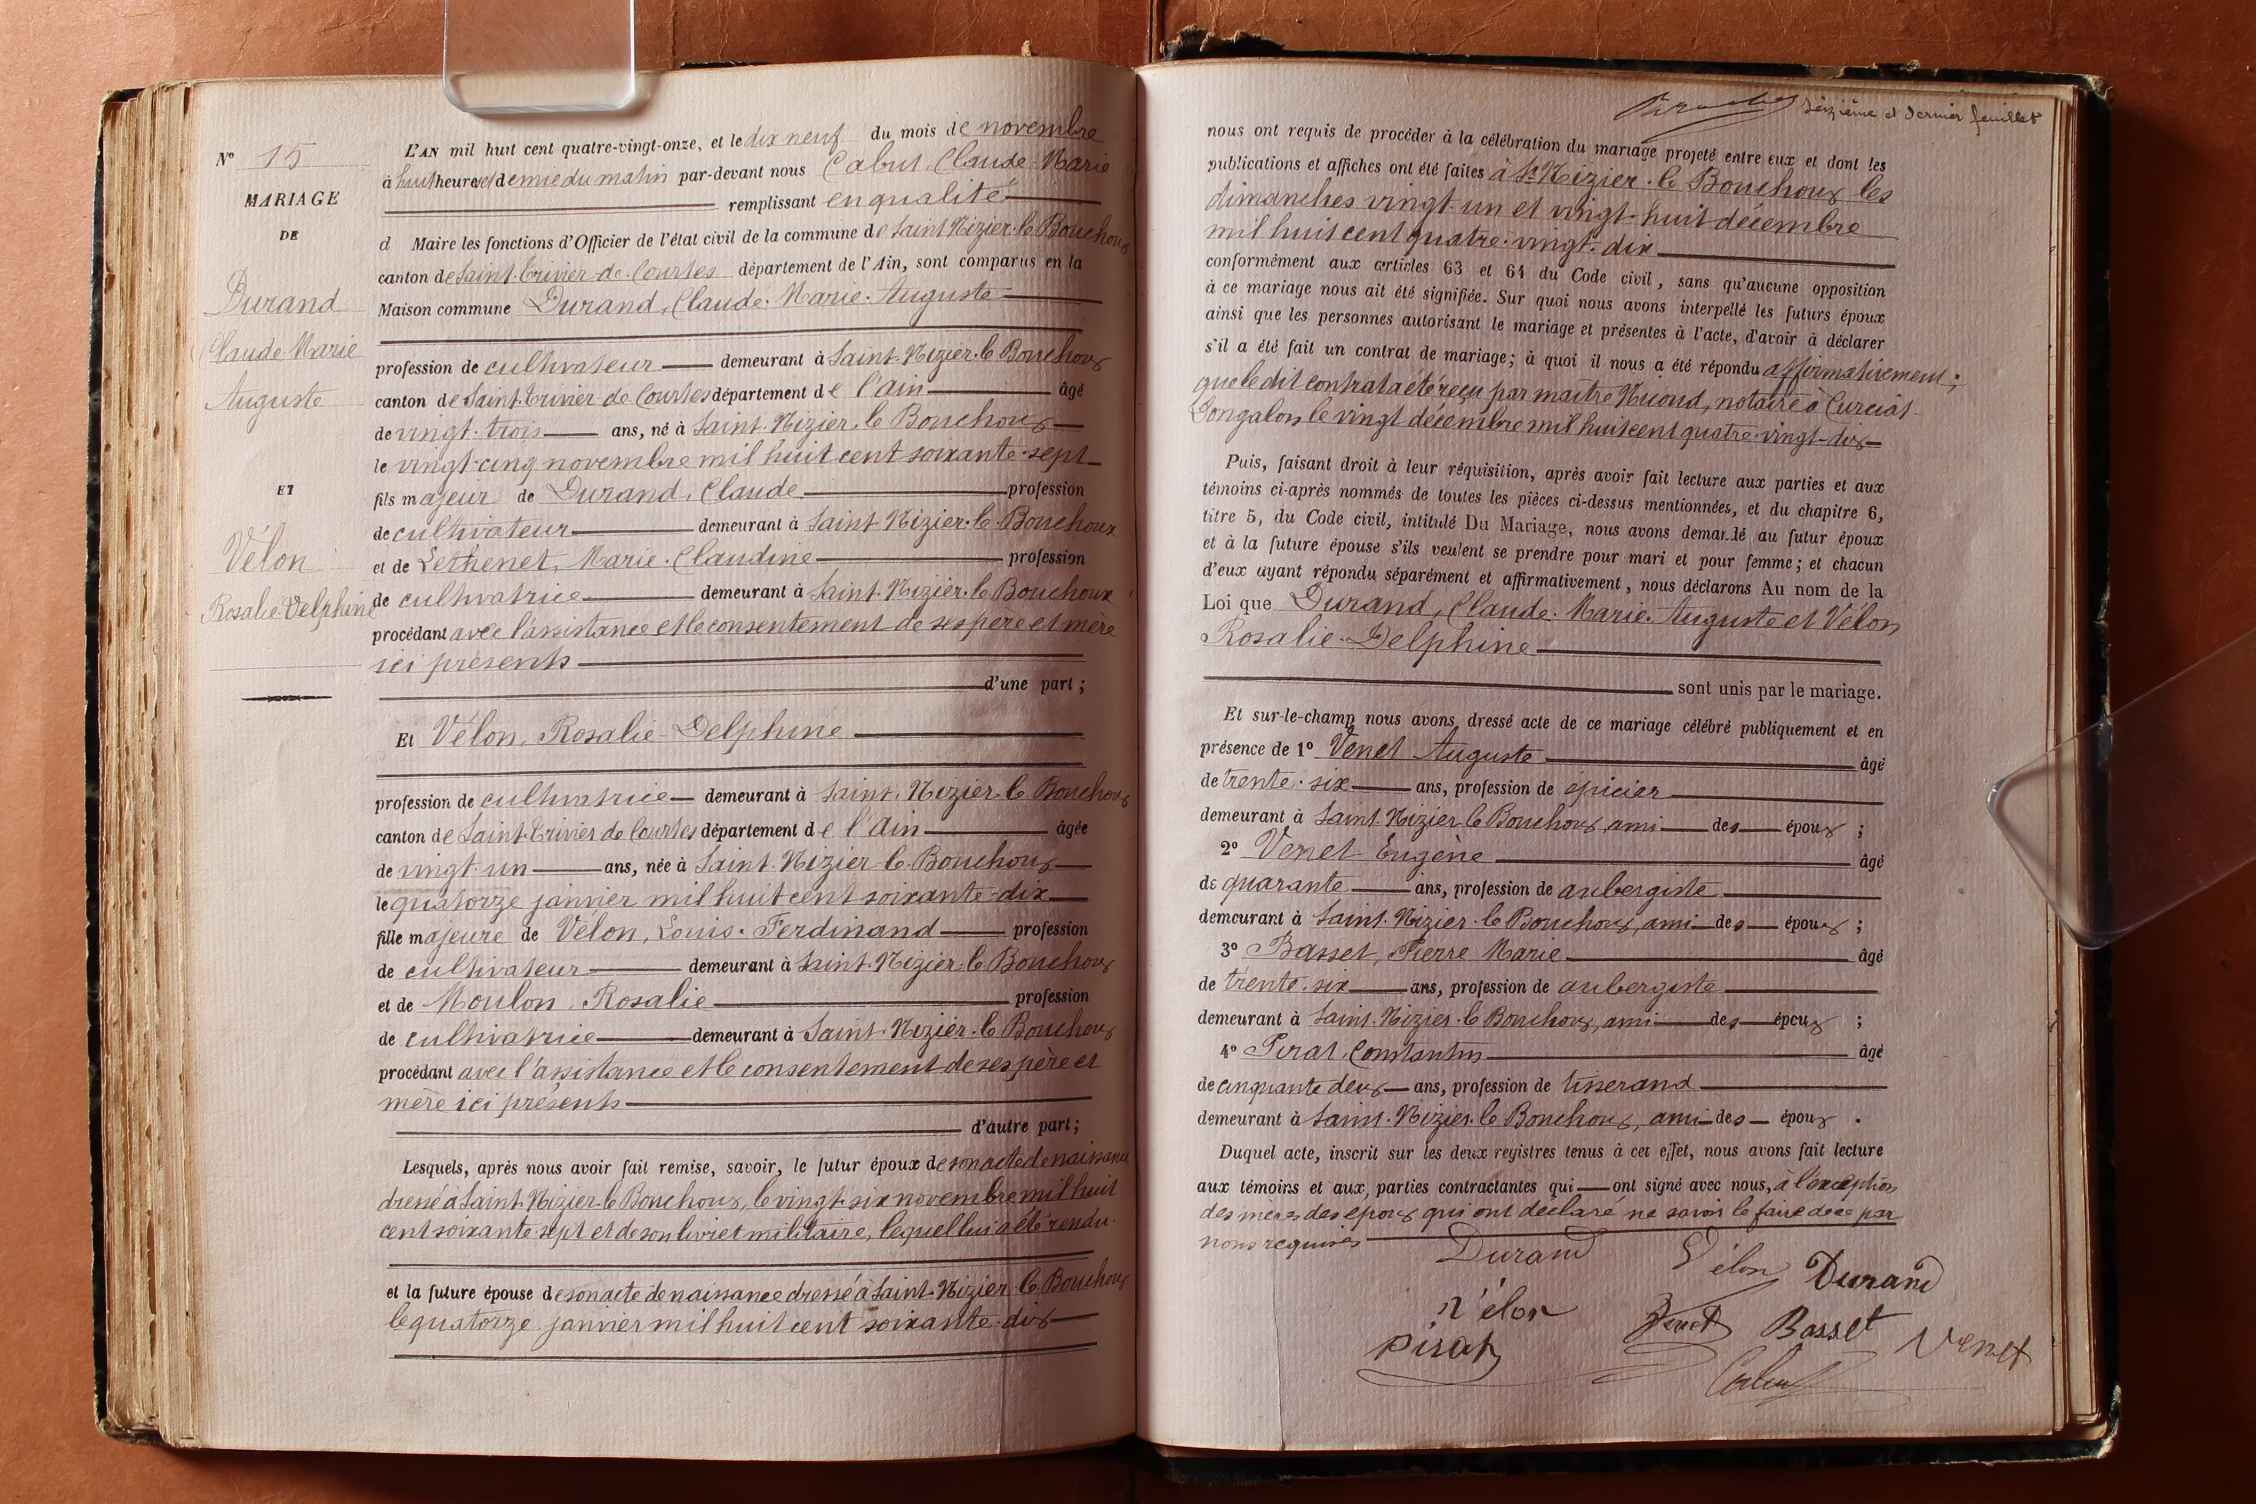 N° 15
MARIAGE
DE
Durand
Claude Marie
Auguste
ET
Vélon
Rosalie Delphine
L'AN mil huit cent quatre-vingt-onze, et le dix neuf du mois de novembre
à huit heures et demie du matin par-devant nous Cabut, Claude-Marie
remplissant en qualité
d Maire les fonctions d'Officier de l'état civil de la commune de Saint Nizier-le Bouchoux
canton de Saint-Trivier-de-Courtes département de l'Ain, sont comparus en la
Maison commune Durand, Claude-Marie-Auguste
profession de cultivateur demeurant à Saint-Nizier-le Bouchoux
canton de Saint-Trivier-de Courtes département de l'ain âgé
de vingt-trois ans, né à Saint-Nizier-le Bouchoux
le vingt-cinq novembre mil huit cent soixante-sept
fils majeur de Durand, Claude profession
de cultivateur demeurant à Saint-Nizier-le-Bouchoux
et de Lethenet, Marie-Claudine profession
de cultivatrice demeurant à Saint-Nizier-le Bouchoux
procédant avec l'assistance et le consentement de ses père et mère
ici présents
d'une part;
Et Vélon, Rosalie-Delphine
profession de cultivatrice demeurant à Saint-Nizier-le Bouchoux
canton de Saint-Trivier de Courtes département de l'Ain âgée
de vingt-un ans, née à Saint-Nizier-le-Bouchoux
le quatorze janvier mil huit cent soixante-dix
fille majeure de Vélon, Louis-Ferdinand profession
de cultivateur demeurant à Saint-Nizier-le Bouchoux
et de Moulon, Rosalie profession
de cultivatrice demeurant à Saint-Nizier-le Bouchoux
procédant avec l'assistance et le consentement de ses père et
mère ici présents
d'autre part;
Lesquels, après nous avoir fait remise, savoir, le futur époux de son acte de naissance
dressé à Saint-Nizier-le-Bouchoux, le vingt-six novembre mil huit
cent soixante-sept et de son livret militaire, lequel lui a été rendu.
et la future épouse de son acte de naissance dressé à Saint-Nizier-le Bouchoux
le quatorze janvier mil huit cent soixante-dix
seizième et dernier feuillet
nous ont requis de procéder à la célébration du mariage projeté entre eux et dont les
publications et affiches ont été faites à St Nizier-le Bouchoux les
dimanches vingt-un et vingt-huit décembre
mil huit cent quatre-vingt-dix
conformément aux articles 63 et 64 du Code civil, sans qu'aucune opposition
à ce mariage nous ait été signifiée. Sur quoi nous avons interpellé les futurs époux
ainsi que les personnes autorisant le mariage et présentes à l'acte, d'avoir à déclarer
s'il a été fait un contrat de mariage; à quoi il nous a été répondu affirmativement;
que le dit contrat a été reçu par maître notaire à Curciat-
Dongalon, le vingt décembre mil huit cent quatre-vingt-dix
Puis, faisant droit à leur réquisition, après avoir fait lecture aux parties et aux
témoins ci-après nommés de toutes les pièces ci-dessus mentionnées, et du chapitre 6,
titre 5, du Code civil, intitulé Du Mariage, nous avons demandé au futur époux
et à la future épouse s'ils veulent se prendre pour mari et pour femme; et chacun
d'eux ayant répondu séparément et affirmativement, nous déclarons Au nom de la
Loi que Durand, Claude-Marie-Auguste et Vélon
Rosalie-Delphine
sont unis par le mariage.
Et sur-le-champ nous avons dressé acte de ce mariage célébré publiquement et en
présence de 1° Venet Auguste âgé
de trente-six ans, profession de épicier
demeurant à Saint-Nizier le Bouchoux, ami des époux;
2° Venet Eugène âgé
de quarante ans, profession de aubergiste
demeurant à Saint-Nizier-le Bouchoux, ami des époux;
3° Basset, Pierre Marie âgé
de trente-six ans, profession de aubergiste
demeurant à Saint-Nizier-le Bouchoux, ami des époux;
4° Pirat, Constantin âgé
de cinquante deux ans, profession de tisserand
demeurant à Saint-Nizier-le Bouchoux, ami des époux.
Duquel acte, inscrit sur les deux registres tenus à cet effet, nous avons fait lecture
aux témoins et aux parties contractantes qui ont signé avec nous, à l'exception
des mères des époux qui ont déclaré ne savoir le faire de ce par
nous requises
Durand Vélon Durand
Vélon Venet Basset Venet
Pirat Cabut